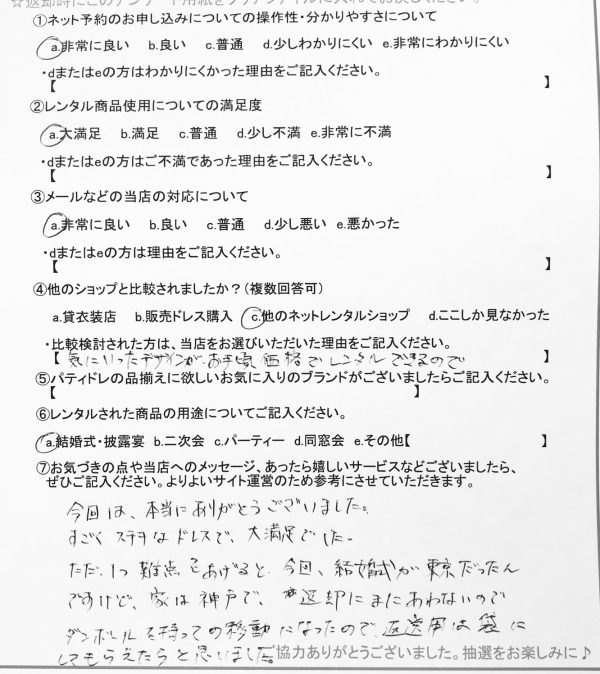 ☆返却時にこのアンケート用紙をクリアファイルに入れてお戻しください。
①ネット予約のお申し込みについての操作性・分かりやすさについて
a.非常に良い b.良い c.普通 d.少しわかりにくい e.非常にわかりにくい
・dまたはeの方はわかりにくかった理由をご記入ください。
【 】
②レンタル商品使用についての満足度
a.大満足 b.満足 c.普通 d.少し不満 e.非常に不満
・dまたはeの方はご不満であった理由をご記入ください。
【 】
③メールなどの当店の対応について
a.非常に良い b.良い c.普通 d.少し悪い e.悪かった
・dまたはeの方は理由をご記入ください。
【 】
④他のショップと比較されましたか？（複数回答可）
a.貸衣装店 b.販売ドレス購入 c.他のネットレンタルショップ d.ここしか見なかった
・比較検討された方は、当店をお選びいただいた理由をご記入ください。
【 気にいったデザインが、お手頃価格でレンタルできるので
⑤パティドレの品揃えに欲しいお気に入りのブランドがございましたらご記入ください。
【 】
⑥レンタルされた商品の用途についてご記入ください。
a.結婚式・披露宴 b.二次会 c.パーティー d.同窓会 e.その他【 】
⑦お気づきの点や当店へのメッセージ、あったら嬉しいサービスなどございましたら、
ぜひご記入ください。よりよいサイト運営のため参考にさせていただきます。
今回は、本当にありがとうございました。
すごくステキなドレスで、大満足でした。
ただ、1つ難点をあげると、今回、結婚式が東京だったん
ですけど、家は神戸で、返却にまにあわないので
ダンボールを持っての移動になったので、返送用は袋に
してもらえたらと思いました。
ご協力ありがとうございました。抽選をお楽しみに♪